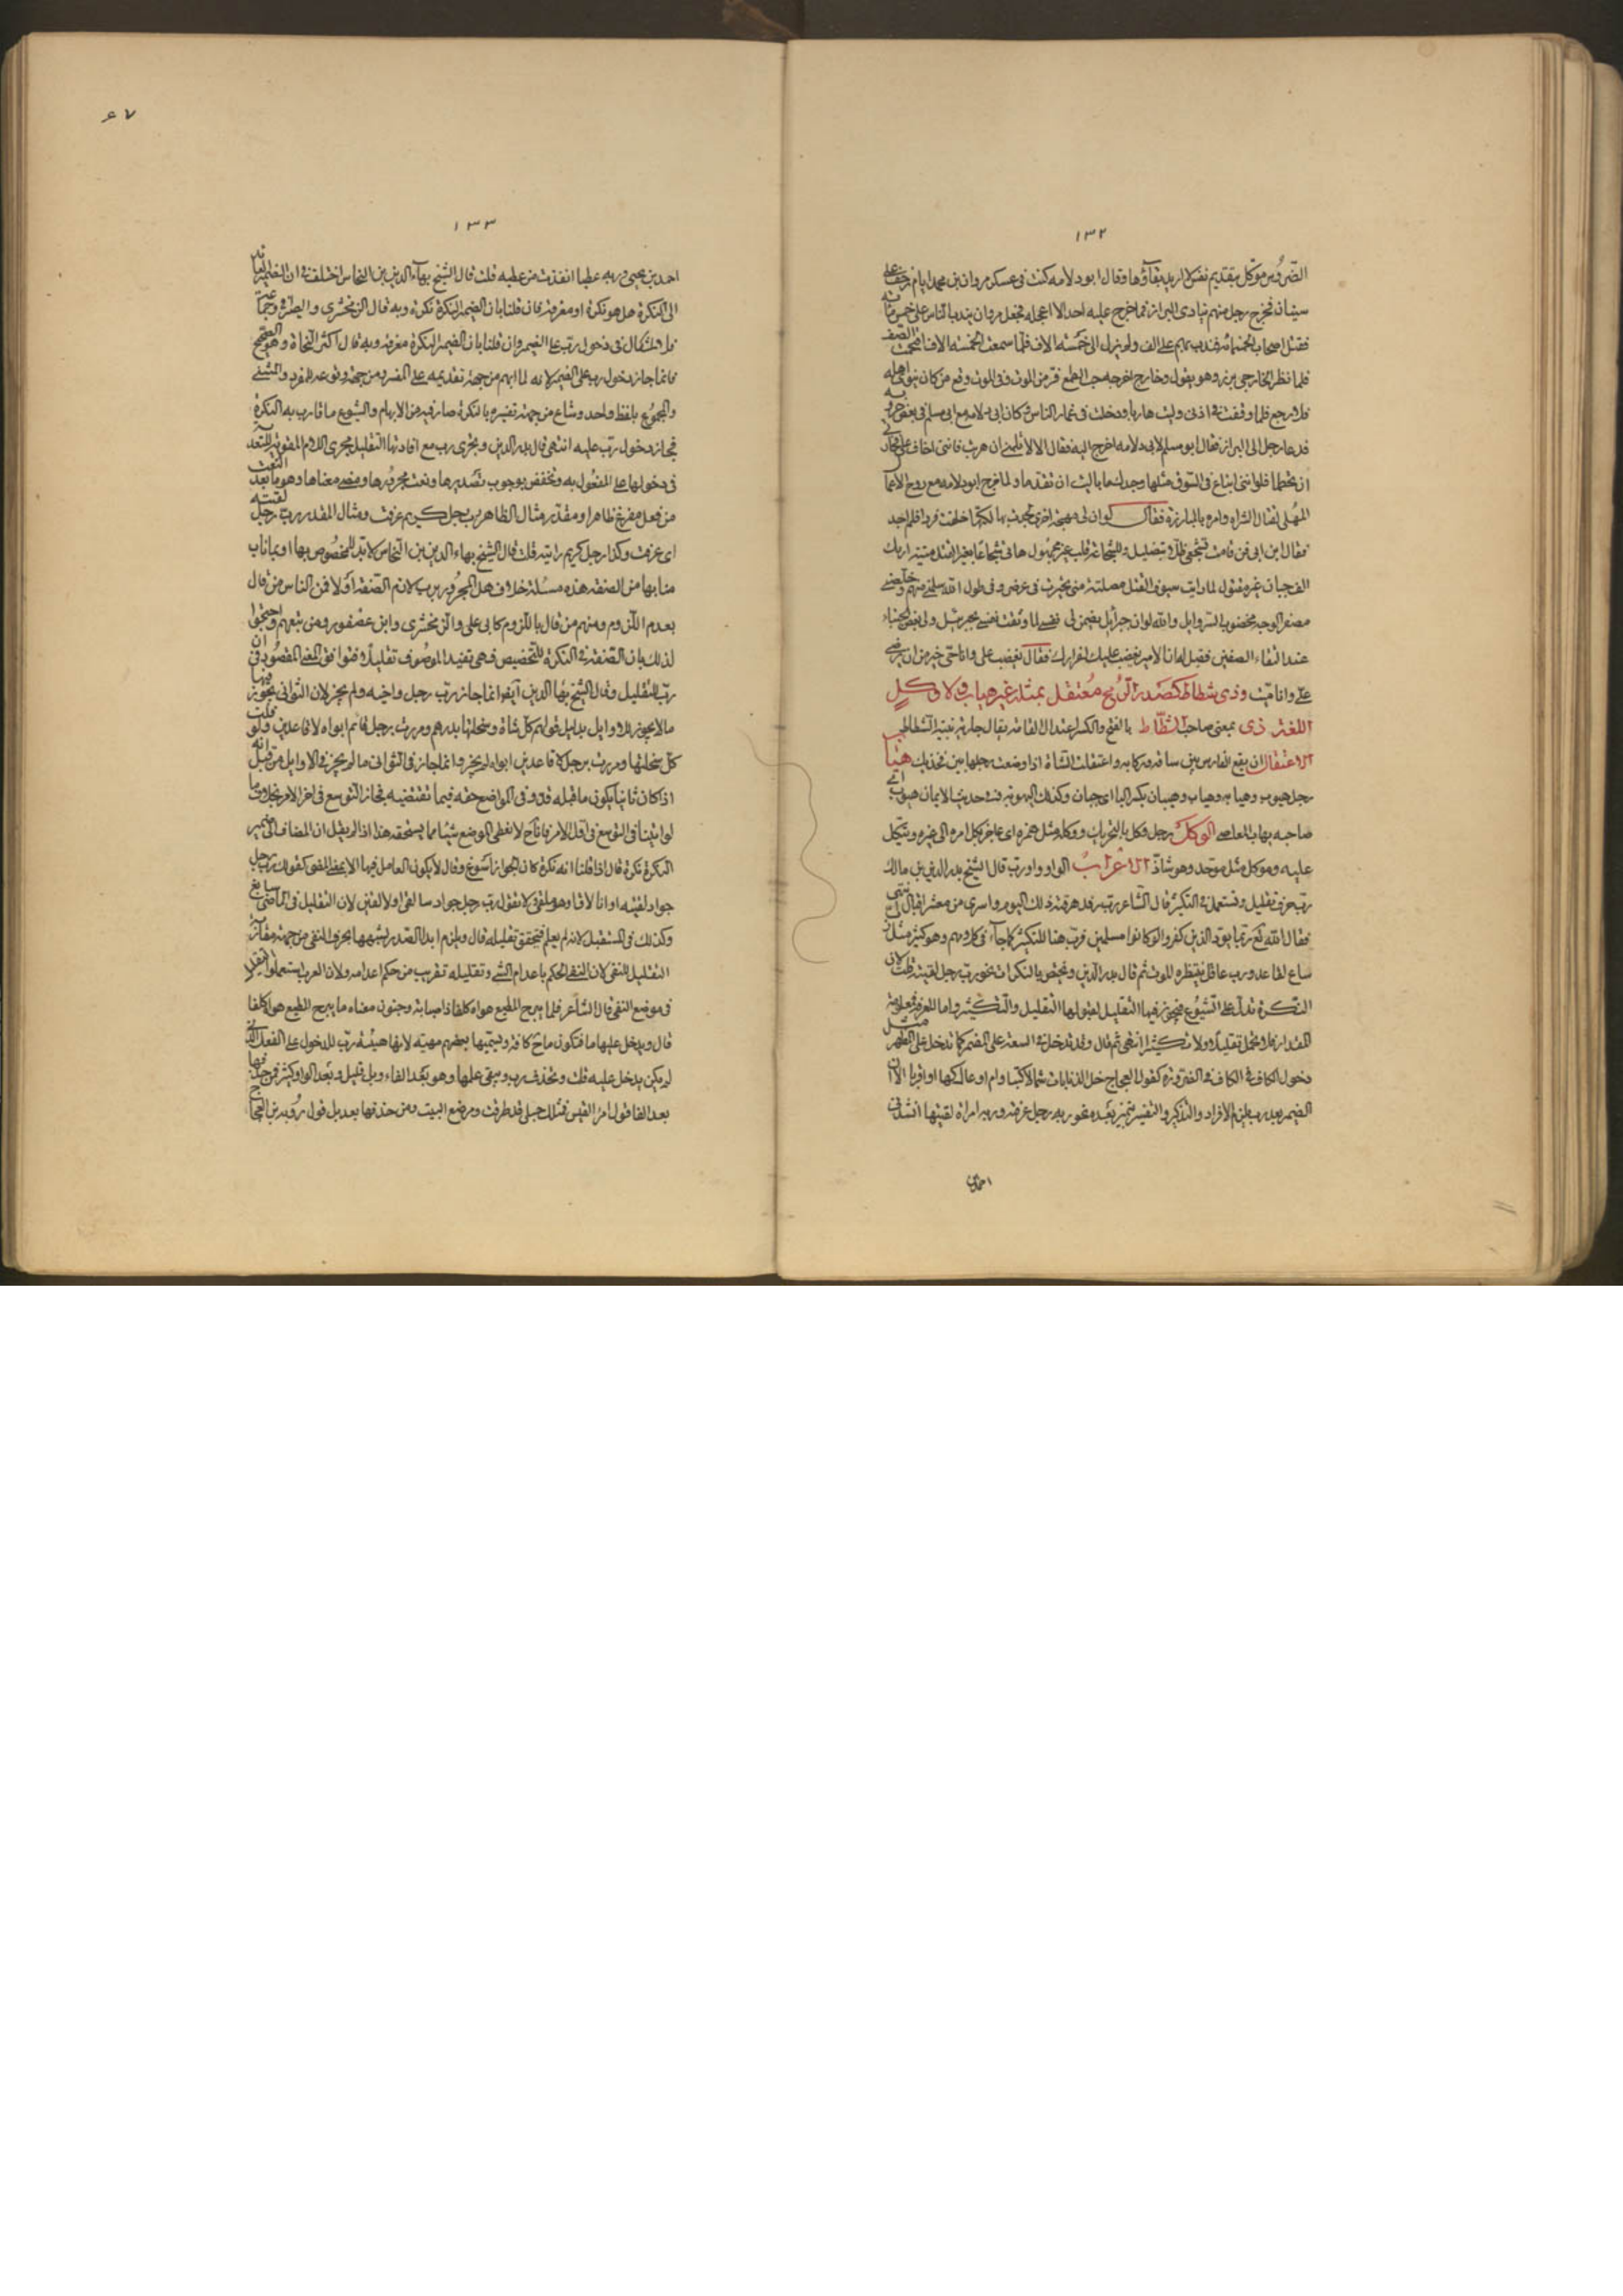 ١٣٢
الضروس موكل بتقديم نفس لا اريد بقاؤها وقال ابو دلامه كنت فى عسكر مروان بن محمد ايام زحف على
سنان فخرج رجل منهم ينادى البراز فما خرج عليه احد الا اعجله فجعل مروان يندب الناس على خمس مائه
فقتل اصحاب الخمسمائه فندب على الف ولم يزل الى خمسة الاف فلما سمعت الخمسه الاف اقتحمت الصف
فلما نظر الخارجى برز وهو يقول وخارج اخرجه حب الطمع فر من الموت وفى الموت وقع من كان ينوى اهله
فلا رجع فلما وقفت فى اذنى وليت هاربا ودخلت فى غمار الناس وكان ابى دلامه مع ابى مسلم فى بعض حروبه
فدعا رجل الى البراز فقال ابو مسلم لابى دلامه اخرج اليه فقال الا لا تلمنى ان هربت فاننى اخاف على
ان تحطما فلو اننى ابتاع فى السوق مثلها وجدك ما باليت ان تقدما ولما خرج ابو دلامه مع روح
المهلبى لقتال الشراه وامره بالمبارزة فقال لو ان لى مهجه اخرى لجدت بها لكنها خلقت فردا فلم اجد
عند التقاء الصفين فقيل له ان الامير يغضب عليك لفرارك فقال يغضب على وانا حى خير من ان يرضى
على وانا ميت وذى شطاط كصدر الرمح معتقل بمثله غير هياب ولا وكل
اللغة ذى بمعنى صاحب الشطاط بالفتح والكسر اعتدال القامة يقال جارية بينة الشطاط
الاعتقال ان يضع الفارس بين ساقه وركابه واعتقلت الشاة اذا وضعت رجلها بين فخذيك هيا
رجل هيوب وهيابه وهياب وهيبان بكسر اليا اى جبان وكذلك الهيوبه فى حديث الايمان هيوب اى
صاحبه يهاب المعاصى الوكل رجل وكل بالتحريك ووكله مثل همزه اى عاجز يكل امره الى غيره ويتكل
عليه وموكل مثل موحد وهو شاذ الاعراب الواو واو رب قال الشيخ بدر الدين بن مالك
رب حرف تقليل وتستعمل فى التكثير قال الشاعر رب رفد هرقته ذلك اليوم واسرى من معشر اقيال
فقال الله تع ربما يود الذين كفروا لو كانوا مسلمين فرب هنا للتكثير كما جاء فى كلامهم وهو كثير مثل
ساع لقاعد ورب غافل ينتظره الموت ثم قال بدر الدين وتختص بالنكرات نحو رب رجل لقيته قلت لان
النكرة تدل على الشيوع فيجوز فيها التقليل لقبولها التقليل والتكثير واما المعرفة فمعلومة
المقدار فلا تحتمل تقليلا ولا تكثيرا انتهى ثم قال وقد تدخل فى السعة على المضمر كما تدخل
دخول الكاف فى الضرورة كقول العجاج خلى الذنابات شمالا كثبا وام اوعال كها او اقربا الا ان
الضمير بعد رب يلزم الافراد والتذكير والتفسير بتمييز بعده نحو ربه رجل عرفته وربه امراة لقيتها انشد
احمد بن
٦٧
١٣٣
احمد بن يحيى وربه عطبا انقذت من عطبه قلت قال الشيخ بهاء الدين بن النحاس اختلف فى ان الضمير العائد
الى النكرة هل هو نكرة او معرفة فان قلنا بان الضمير للنكرة نكرة وبه قال الزمخشرى
فلا اشكال فى دخول رب على الضمير وان قلنا بان الضمير للنكرة معرفة وبه قال اكثر النحاة وهو الصحيح
فانما جاز دخول رب على الضمير لانه لما ابهم من جهة تقديمه على المفسر ومن جهة وقوعه للمفرد والمثنى
والمجموع بلفظ واحد وشاع من جهة تفسيره بالنكرة صار فيه من الابهام والشيوع ما قارب به النكرة
فجاز دخول رب عليه انتهى قال بدر الدين وتجرى رب مع افادتها التقليل مجرى اللام المقوية للتعدى
فى دخولها على المفعول به وتختص بوجوب تصديرها ونعت مجرورها ومضى معناها وهو ما بعد النعت
من فعل مفرغ ظاهرا ومقدر مثال الظاهر رب رجل كريم عرفت ومثال المقدر رب رجل لقيته
اى عرفت وكذا رجل كريم رايته قلت قال الشيخ بهاء الدين بن النحاس لا بد للمخصوص بها او بما ناب
منابها من الصفة هذه مسئلة خلاف هل المجرور برب لازم الصفة اولا فمن الناس من قال
بعدم اللزوم ومنهم من قال باللزوم كابى على والزمخشرى وابن عصفور ومن تبعهم واحتجوا
لذلك بان الصفة فى النكرة للتخصيص فهى تفيد الموصوف تقليلا فتوافق المعنى المقصود فى
رب للتقليل وقال الشيخ بها الدين ايضا انما جاز رب رجل واخيه ولم يجز لان الثوانى يجوز فيها
ما لا يجوز للاوايل بدليل قولهم كل شاة وسخلتها بدرهم ومررت برجل قائم ابواه لا قاعدين ولو قلت
كل سخلتها ومررت برجل لا قاعدين ابواه لم يجز وانما جاز فى الثوانى ما لم يجز فى الاوايل من قبل انه
اذا كان ثانيا يكون ما قبله قد وفى الموضع حقه فيما تقتضيه فجاز التوسع فى اخر الامر بخلاف ما
لو اتينا فى التوسع فى اول الامر فانا ح لا نعطى الموضع شيئا مما يستحقه هذا اذا لم يقل ان المضاف الى ضمير
النكرة نكرة قال اذا قلنا انه نكرة كان الجواز اسوغ وقال لا يكون العامل فيها الا بمعنى المضى كقولك رب رجل
جواد لقيته او انا لاق او هو ملقى ولا تقول رب رجل جواد سالقى او لالقين لان التقليل فى الماضى سايغ
وكذلك فى المستقبل لانه لم يعلم فيتحقق تقليله قال ويلزم ابدا الصدر لشبهها بحرف النفى من جهة مقاربة
التقليل للنفى لان النفى الحكم باعدام الشى وتقليله تقريب من حكم اعدامه ولان العرب استعملوا التقليل
فى موضع النفى قال الشاعر قلما يبرح المطيع هواه كلفا ذا صبابة وجنون معناه ما يبرح المطيع هواه كلفا
قال ويدخل عليها ما فتكون ما ح كافة ويسميها بعضهم مهيئه لانها هيئت رب للدخول على الفعل الذى
لم يكن يدخل عليه قلت وتحذف رب ويبقى عملها وهو بعد الفاء وبل قليل وبعد الواو كثير فمن حذفها
بعد الفا قول امرء القيس فمثلك حبلى قد طرقت ومرضع البيت ومن حذفها بعد بل قول رؤبه بن العجاج